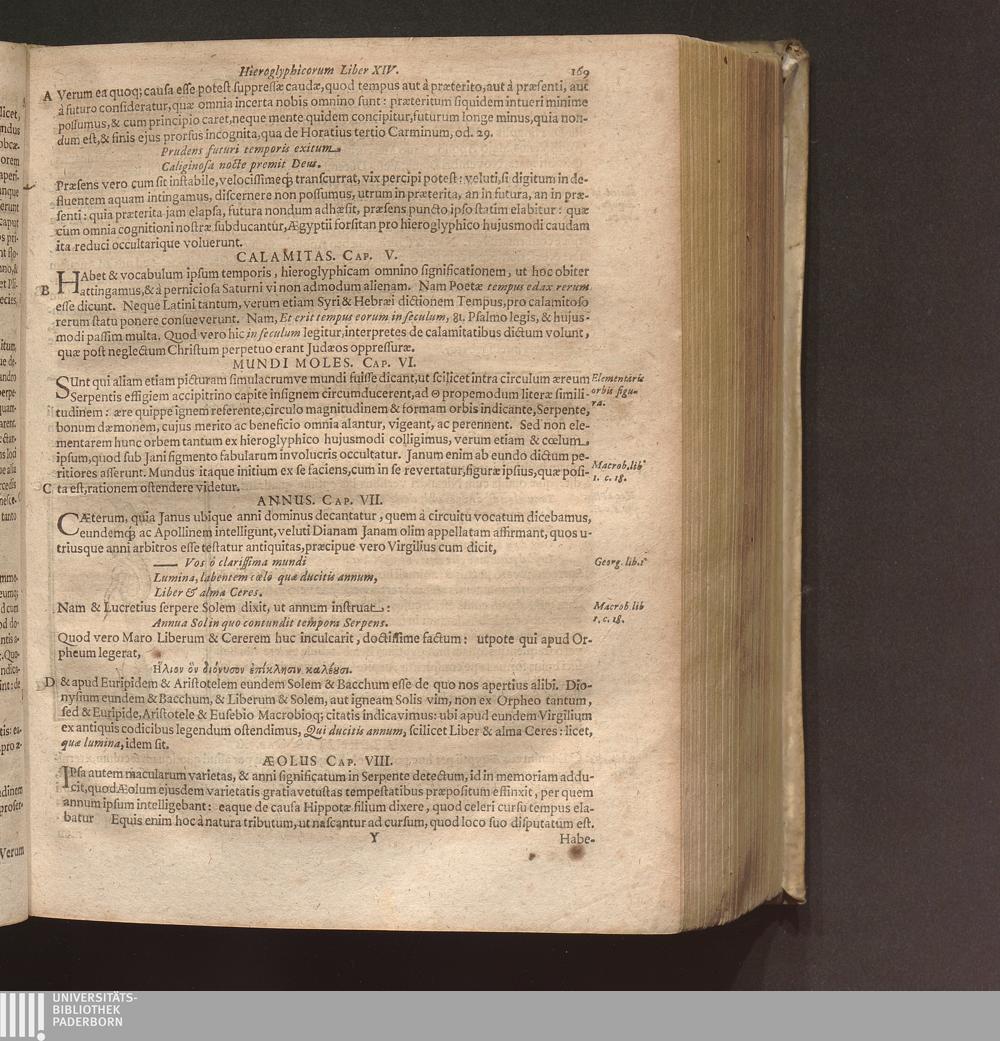 Hieroglyphicorum Liber XIV. 169
A Verum ea quoq; causa esse potest suppressæ caudæ, quod tempus aut à præterito, aut à præsenti, aut
à futuro consideratur, quæ omnia incerta nobis omnino sunt: præteritum siquidem intueri minime
possumus, & cum principio caret, neque mente quidem concipitur, futurum longe minus, quia non-
dum est, & finis ejus prorsus incognita, qua de Horatius tertio Carminum, od. 29.
Prudens futuri temporis exitum
Caliginosa nocte premit Deus.
Præsens vero cum sit instabile, velocissimeq; transcurrat, vix percipi potest: veluti, si digitum in de-
fluentem aquam intingamus, discernere non possumus, utrum in præterita, an in futura, an in præ-
senti: quia præterita jam elapsa, futura nondum adhæsit, præsens puncto ipso statim elabitur: quæ
cum omnia cognitioni nostræ subducantur, Ægyptii forsitan pro hieroglyphico hujusmodi caudam
ita reduci occultarique voluerunt.
CALAMITAS. CAP. V.
HAbet & vocabulum ipsum temporis, hieroglyphicam omnino significationem, ut hoc obiter
B attingamus, & à perniciosa Saturni vi non admodum alienam. Nam Poetæ tempus edax rerum
esse dicunt. Neque Latini tantum, verum etiam Syri & Hebræi dictionem Tempus, pro calamitoso
rerum statu ponere consueverunt. Nam, Et erit tempus eorum in seculum, 81. Psalmo legis, & hujus-
modi passim multa. Quod vero hic in seculum legitur, interpretes de calamitatibus dictum volunt,
quæ post neglectum Christum perpetuo erant Judæos oppressuræ.
MUNDI MOLES. CAP. VI.
SUnt qui aliam etiam picturam simulacrumve mundi fuisse dicant, ut scilicet intra circulum æreum
Elementaris
Serpentis effigiem accipitrino capite insignem circumducerent, ad Θ propemodum literæ simili-
orbis figu-
tudinem: ære quippe ignem referente, circulo magnitudinem & formam orbis indicante, Serpente,
ra.
bonum dæmonem, cujus merito ac beneficio omnia alantur, vigeant, ac perennent. Sed non ele-
mentarem hunc orbem tantum ex hieroglyphico hujusmodi colligimus, verum etiam & cœlum
ipsum, quod sub Jani figmento fabularum involucris occultatur. Janum enim ab eundo dictum pe-
ritiores asserunt. Mundus itaque initium ex se faciens, cum in se revertatur, figuræ ipsius, quæ posi-
Macrob. lib
1. c. 18.
C ta est, rationem ostendere videtur.
ANNUS. CAP. VII.
CÆterum, quia Janus ubique anni dominus decantatur, quem à circuitu vocatum dicebamus,
eundemq; ac Apollinem intelligunt, veluti Dianam Janam olim appellatam affirmant, quos u-
triusque anni arbitros esse testatur antiquitas, præcipue vero Virgilius cum dicit,
— Vos ô clarissima mundi
Georg. lib. 1
Lumina, labentem cœlo quæ ducitis annum,
Liber & alma Ceres.
Nam & Lucretius serpere Solem dixit, ut annum instruat:
Macrob lib
Annua Sol in quo contundit tempora Serpens.
1. c. 18.
Quod vero Maro Liberum & Cererem huc inculcarit, doctissime factum: utpote qui apud Or-
pheum legerat,
Ηλιον ὃν διόνυσον ἐπίκλησιν καλέουσι.
D & apud Euripidem & Aristotelem eundem Solem & Bacchum esse de quo nos apertius alibi. Dio-
nysium eundem & Bacchum, & Liberum & Solem, aut igneam Solis vim, non ex Orpheo tantum,
sed & Euripide, Aristotele & Eusebio Macrobioq; citatis indicavimus: ubi apud eundem Virgilium
ex antiquis codicibus legendum ostendimus, Qui ducitis annum, scilicet Liber & alma Ceres: licet,
quæ lumina, idem sit.
ÆOLUS CAP. VIII.
IPsa autem macularum varietas, & anni significatum in Serpente detectum, id in memoriam addu-
cit, quod Æolum ejusdem varietatis gratia vetustas tempestatibus præpositum effinxit, per quem
annum ipsum intelligebant: eaque de causa Hippotæ filium dixere, quod celeri cursu tempus ela-
batur Equis enim hoc à natura tributum, ut nascantur ad cursum, quod loco suo disputatum est.
Y Habe-
UNIVERSITÄTS-
BIBLIOTHEK
PADERBORN